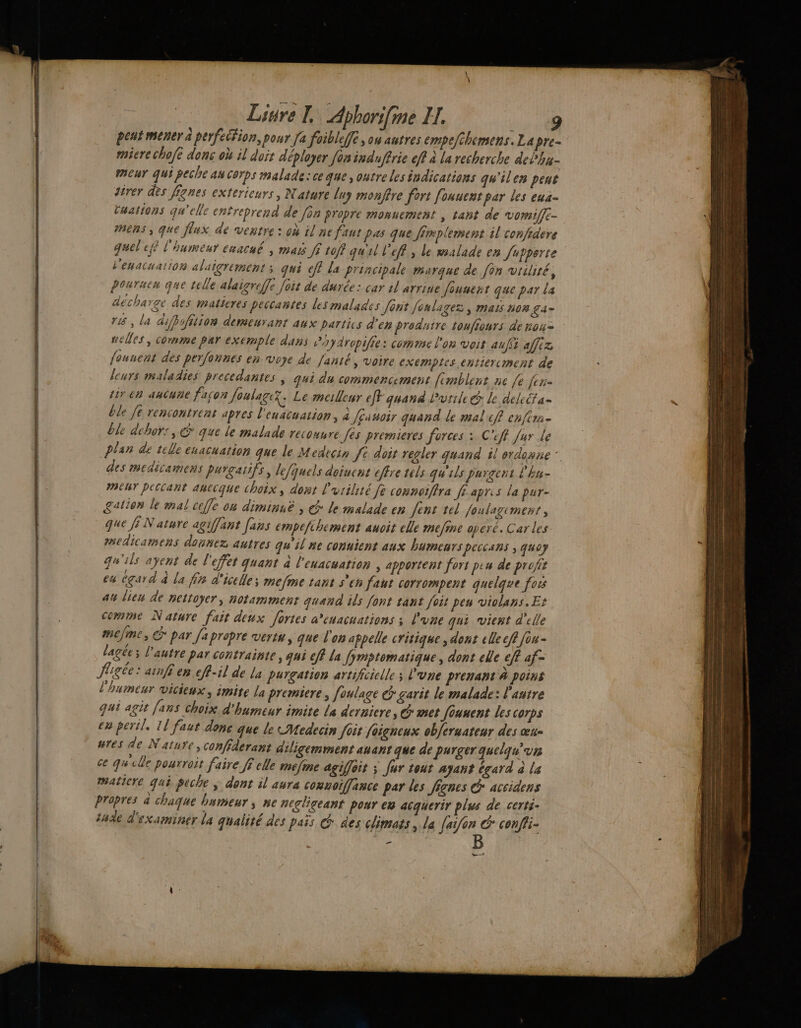 Liure I. Aphorisme II. 9
peut mener à perfection, pour sa foiblesse, ou autres empeschemens. La pre-
miere chose donc où il doit déployer son industrie est à la recherche de l'hu-
meur qui peche au corps malade: ce que, outre les indications qu'il en peut
tirer des signes exterieurs, Nature luy monstre fort souuent par les eua-
cuations qu'elle entreprend de son propre mouuement, tant de vomisse-
mens, que flux de ventre: où il ne faut pas que simplement il considere
quel est l'humeur euacué, mais si tost qu'il l'est, le malade en supporte
l'euacuation alaigrement; qui est la principale marque de son vtilité,
pourueu que telle alaigresse soit de durée: car il arriue souuent que par la
décharge des matieres peccantes les malades sont soulagez, mais non ga-
ris, la disposition demeurant aux parties d'en produire tousiours de nou-
uelles, comme par exemple dans l'hydropisie: comme l'on voit aussi assez
souuent des personnes en voye de santé, voire exemptes entierement de
leurs maladies precedantes, qui du commencement semblent ne se sen-
tir en aucune façon soulagez. Le meilleur est quand l'vtile & le delecta-
ble se rencontrent apres l'euacuation, à sçauoir quand le mal est ensem-
ble dehors, & que le malade recouure ses premieres forces: C'est sur le
plan de telle euacuation que le Medecin se doit regler quand il ordonne
des medicamens purgatifs, lesquels doiuent estre tels qu'ils purgent l'hu-
meur peccant auecque choix, dont l'vtilité se connoistra si apres la pur-
gation le mal cesse ou diminuë, & le malade en sent tel soulagement,
que si Nature agissant sans empeschement auoit elle mesme operé. Car les
medicamens donnez autres qu'il ne conuient aux humeurs peccans, quoy
qu'ils ayent de l'effet quant à l'euacuation, apportent fort peu de profit
eu égard à la fin d'icelle; mesme tant s'en faut corrompent quelque fois
au lieu de nettoyer, notamment quand ils sont tant soit peu violans. Et
comme Nature fait deux sortes d'euacuations; l'vne qui vient d'elle
mesme, & par sa propre vertu, que l'on appelle critique, dont elle est sou-
lagée; l'autre par contrainte, qui est la symptomatique, dont elle est af-
fligée: ainsi en est-il de la purgation artificielle; l'vne prenant à point
l'humeur vicieux, imite la premiere, soulage & garit le malade: l'autre
qui agit sans choix d'humeur imite la derniere, & met souuent les corps
en peril. Il faut donc que le Medecin soit soigneux obseruateur des œu-
ures de Nature, considerant diligemment auant que de purger quelqu'vn
ce qu'elle pourroit faire si elle mesme agissoit; sur tout ayant égard à la
matiere qui peche, dont il aura connoissance par les signes & accidens
propres à chaque humeur, ne negligeant pour en acquerir plus de certi-
tude d'examiner la qualité des païs & des climats, la saison & consti-
B